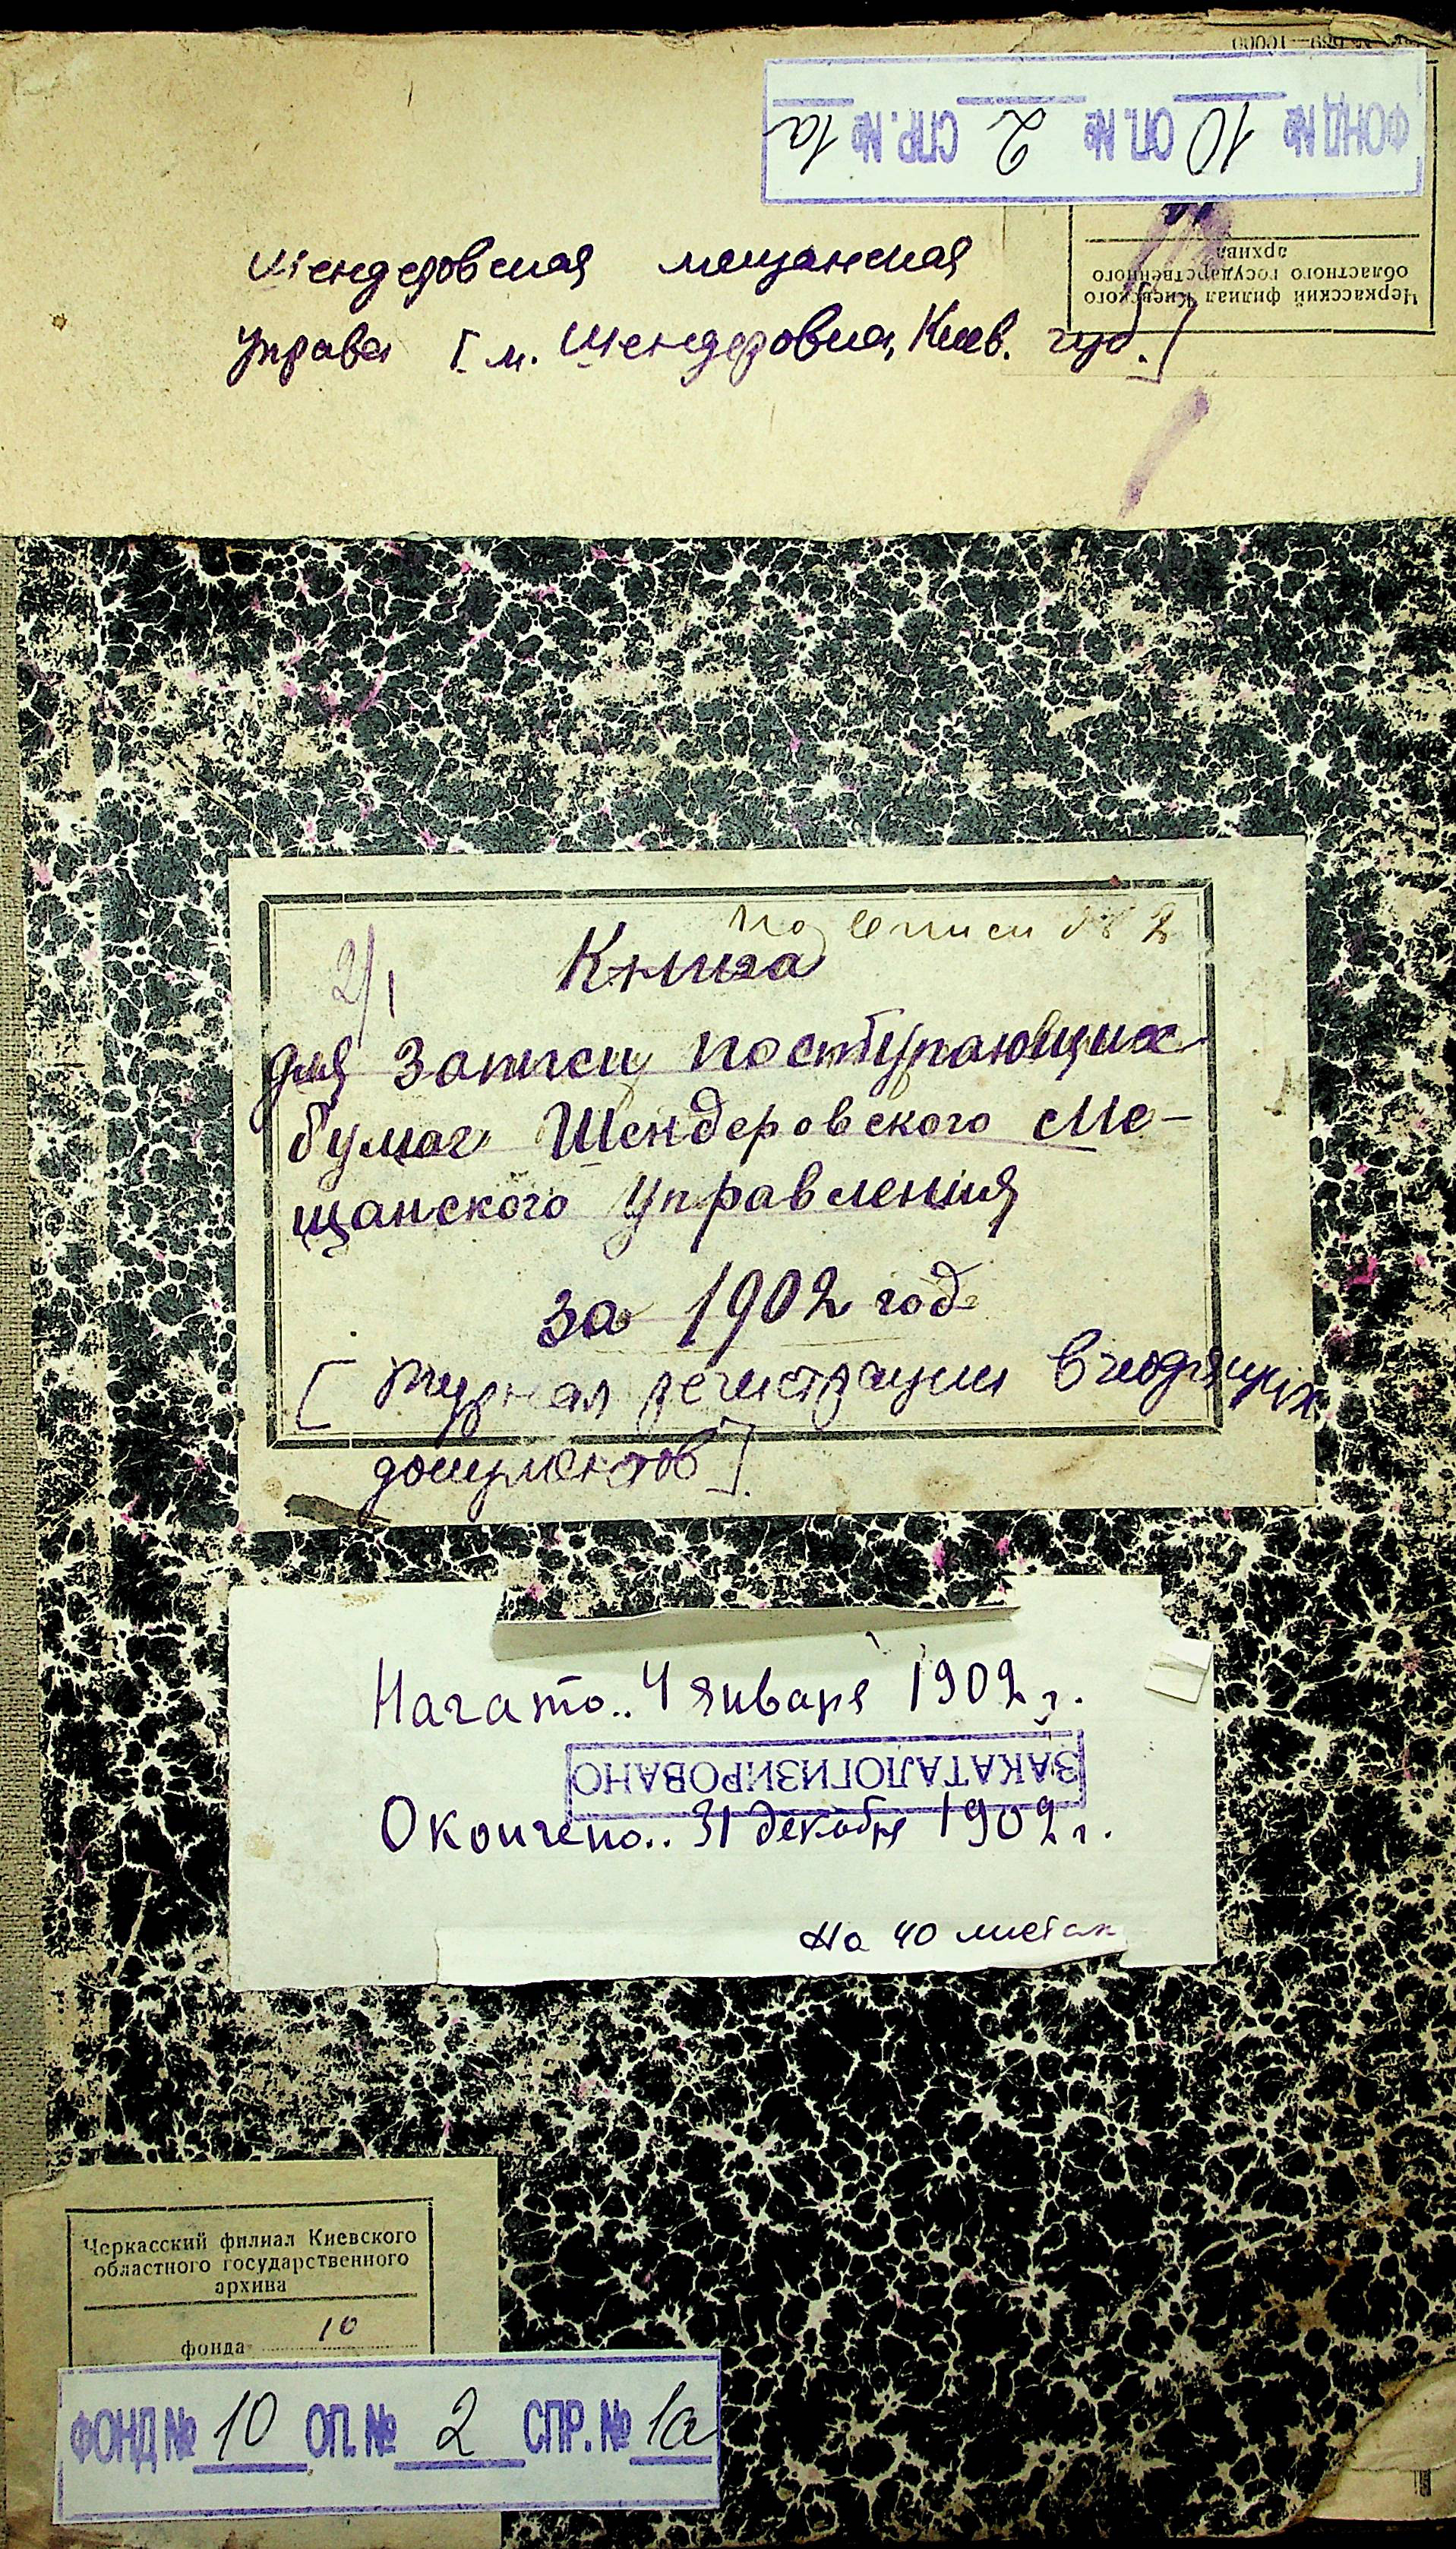 ФОНД № 10 ОП. № 2 СПР. № 1а
Черкасский филиал Киевского
областного государственного
архива
Шендеровская мещанская
управа [м. Шендеровка, Киев. губ.]
По описи № 2
2/1
Книга
для записи поступающих
бумаг Шендеровского Ме-
щанского Управления
за 1902 год
[Журнал регистрации входящих
документов]
Начато.. 4 января 1902 г.
ЗАКАТАЛОГИЗИРОВАНО
Окончено.. 31 декабря 1902 г.
На 40 листах
Черкасский филиал Киевского
областного государственного
архива
фонда 10
ФОНД № 10 ОП. № 2 СПР. № 1а